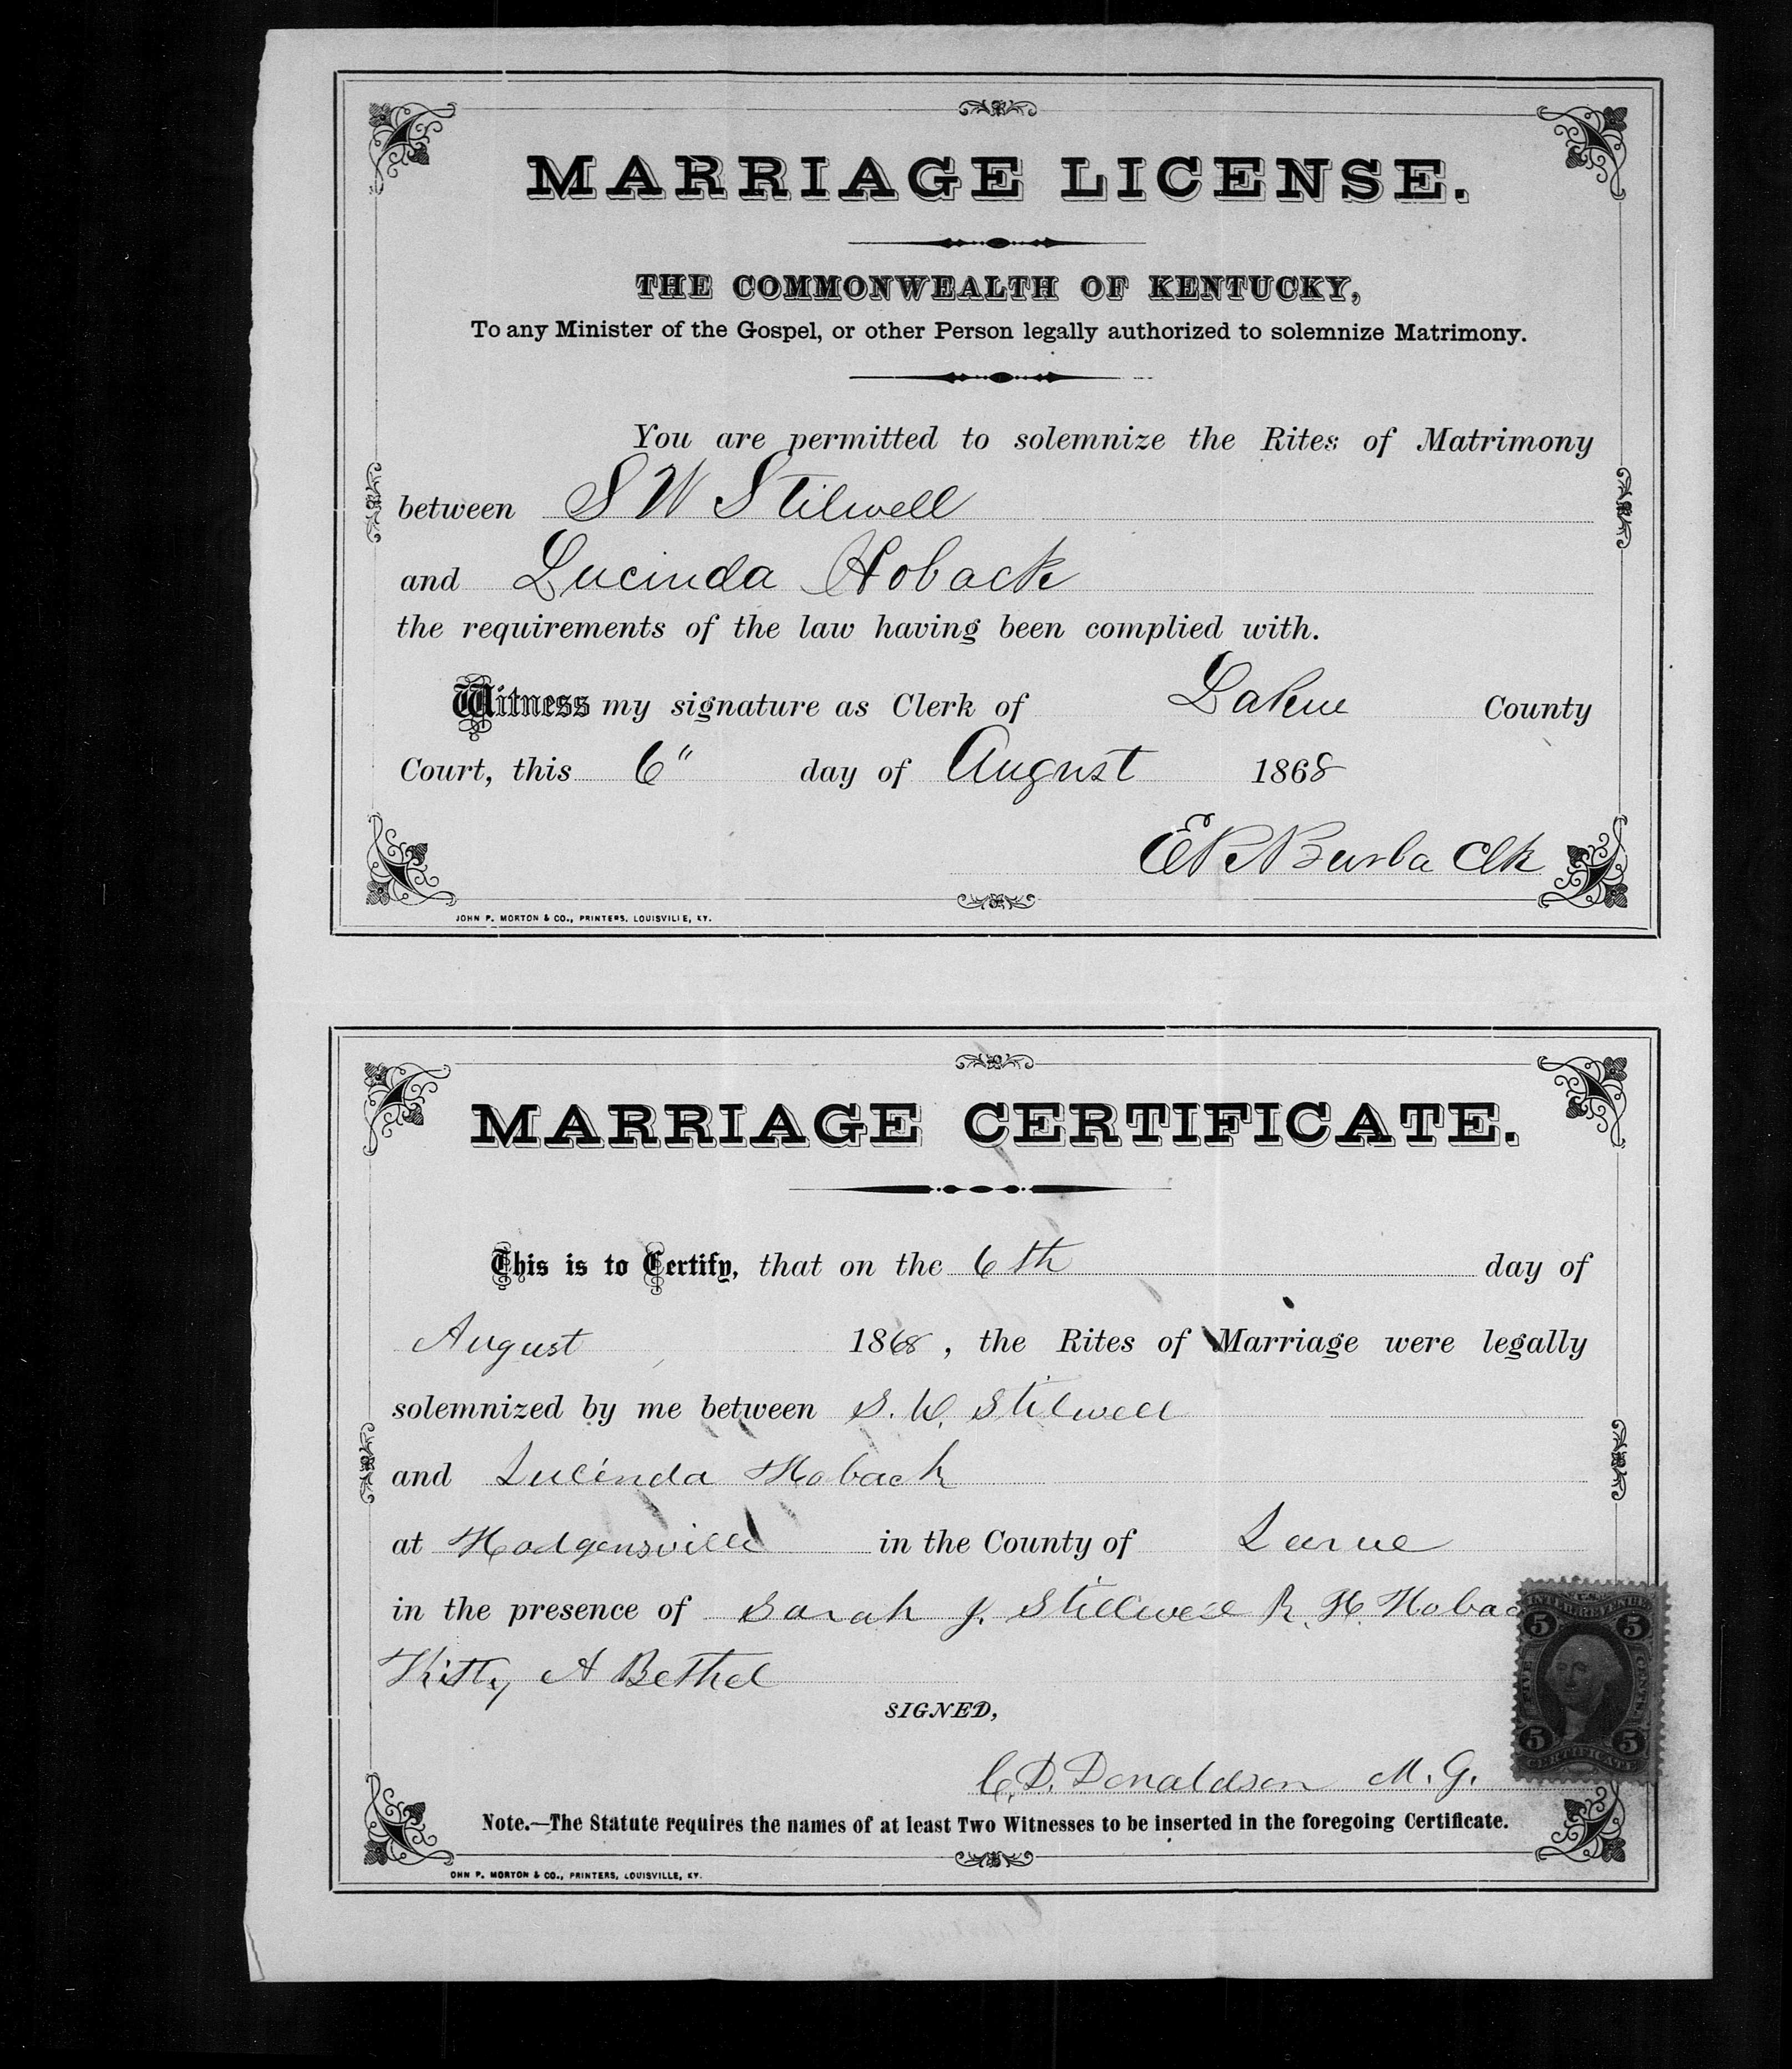 MARRIAGE LICENSE.
THE COMMONWEALTH OF KENTUCKY,
To any Minister of the Gospel, or other Person legally authorized to solemnize Matrimony.
You are permitted to solemnize the Rites of Matrimony
between S W Stilwell
and Lucinda Hoback
the requirements of the law having been complied with.
Witness my signature as Clerk of LaRue County
Court, this 6" day of August 1868
Burba Clk
JOHN P. MORTON & CO., PRINTERS, LOUISVILLE, KY.
MARRIAGE CERTIFICATE.
This is to Certify, that on the 6th day of
August 1868, the Rites of Marriage were legally
solemnized by me between S. W. Stilwell
and Lucinda Hoback
at Hodgensville in the County of Larue
in the presence of Sarah J. Stillwell R. H. Hobac
Kitty A Bethel
SIGNED,
C. D. Donaldson M. G.
Note.—The Statute requires the names of at least Two Witnesses to be inserted in the foregoing Certificate.
OHN P. MORTON & CO., PRINTERS, LOUISVILLE, KY.
5 5
FIVE CENTS.
5 5
CERTIFICATE